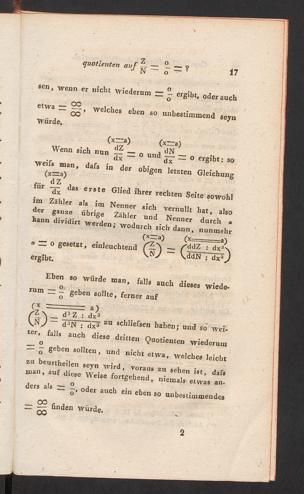 quotienten auf Z/N = o/o = ? 17
sen, wenn er nicht wiederum = o/o ergibt, oder auch
etwa = ∞/∞, welches eben so unbestimmend seyn
würde.
(x=a) (x=a)
Wenn sich nun dZ/dx = o und dN/dx = o ergibt: so
weiſs man, daſs in der obigen letzten Gleichung
(x=a)
für dZ/dx das erste Glied ihrer rechten Seite sowohl
im Zähler als im Nenner sich vernullt hat, also
der ganze übrige Zähler und Nenner durch a
kann dividirt werden; wodurch sich dann, nunmehr
(x=a) (x=a)
a = o gesetat, einleuchtend (Z/N) = (ddZ : dx²/ddN : dx²)
ergibt.
Eben so würde man, falls auch dieses wiede-
rum = o/o geben sollte, ferner auf
(x = a)
(Z/N) = d³Z : dx³/d³N : dx³ zu schlieſsen haben; und so wei-
ter, falls auch diese dritten Quotienten wiederum
= o/o geben sollten, und nicht etwa, welches leicht
zu beurtheilen seyn wird, voraus zu sehen ist, daſs
man, auf diese Weise fortgehend, niemals etwas an-
ders als = o/o, oder auch ein eben so unbestimmendes
= ∞/∞ finden würde.
2